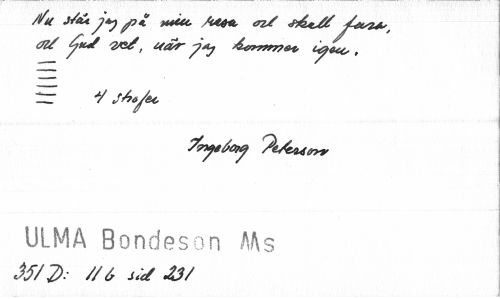 Nu står jag på min resa och skall fara,
och Gud vet, när jag kommer igen.
4 strofer
Ingeborg Peterson
ULMA Bondeson Ms
351 D: 11 b sid 231